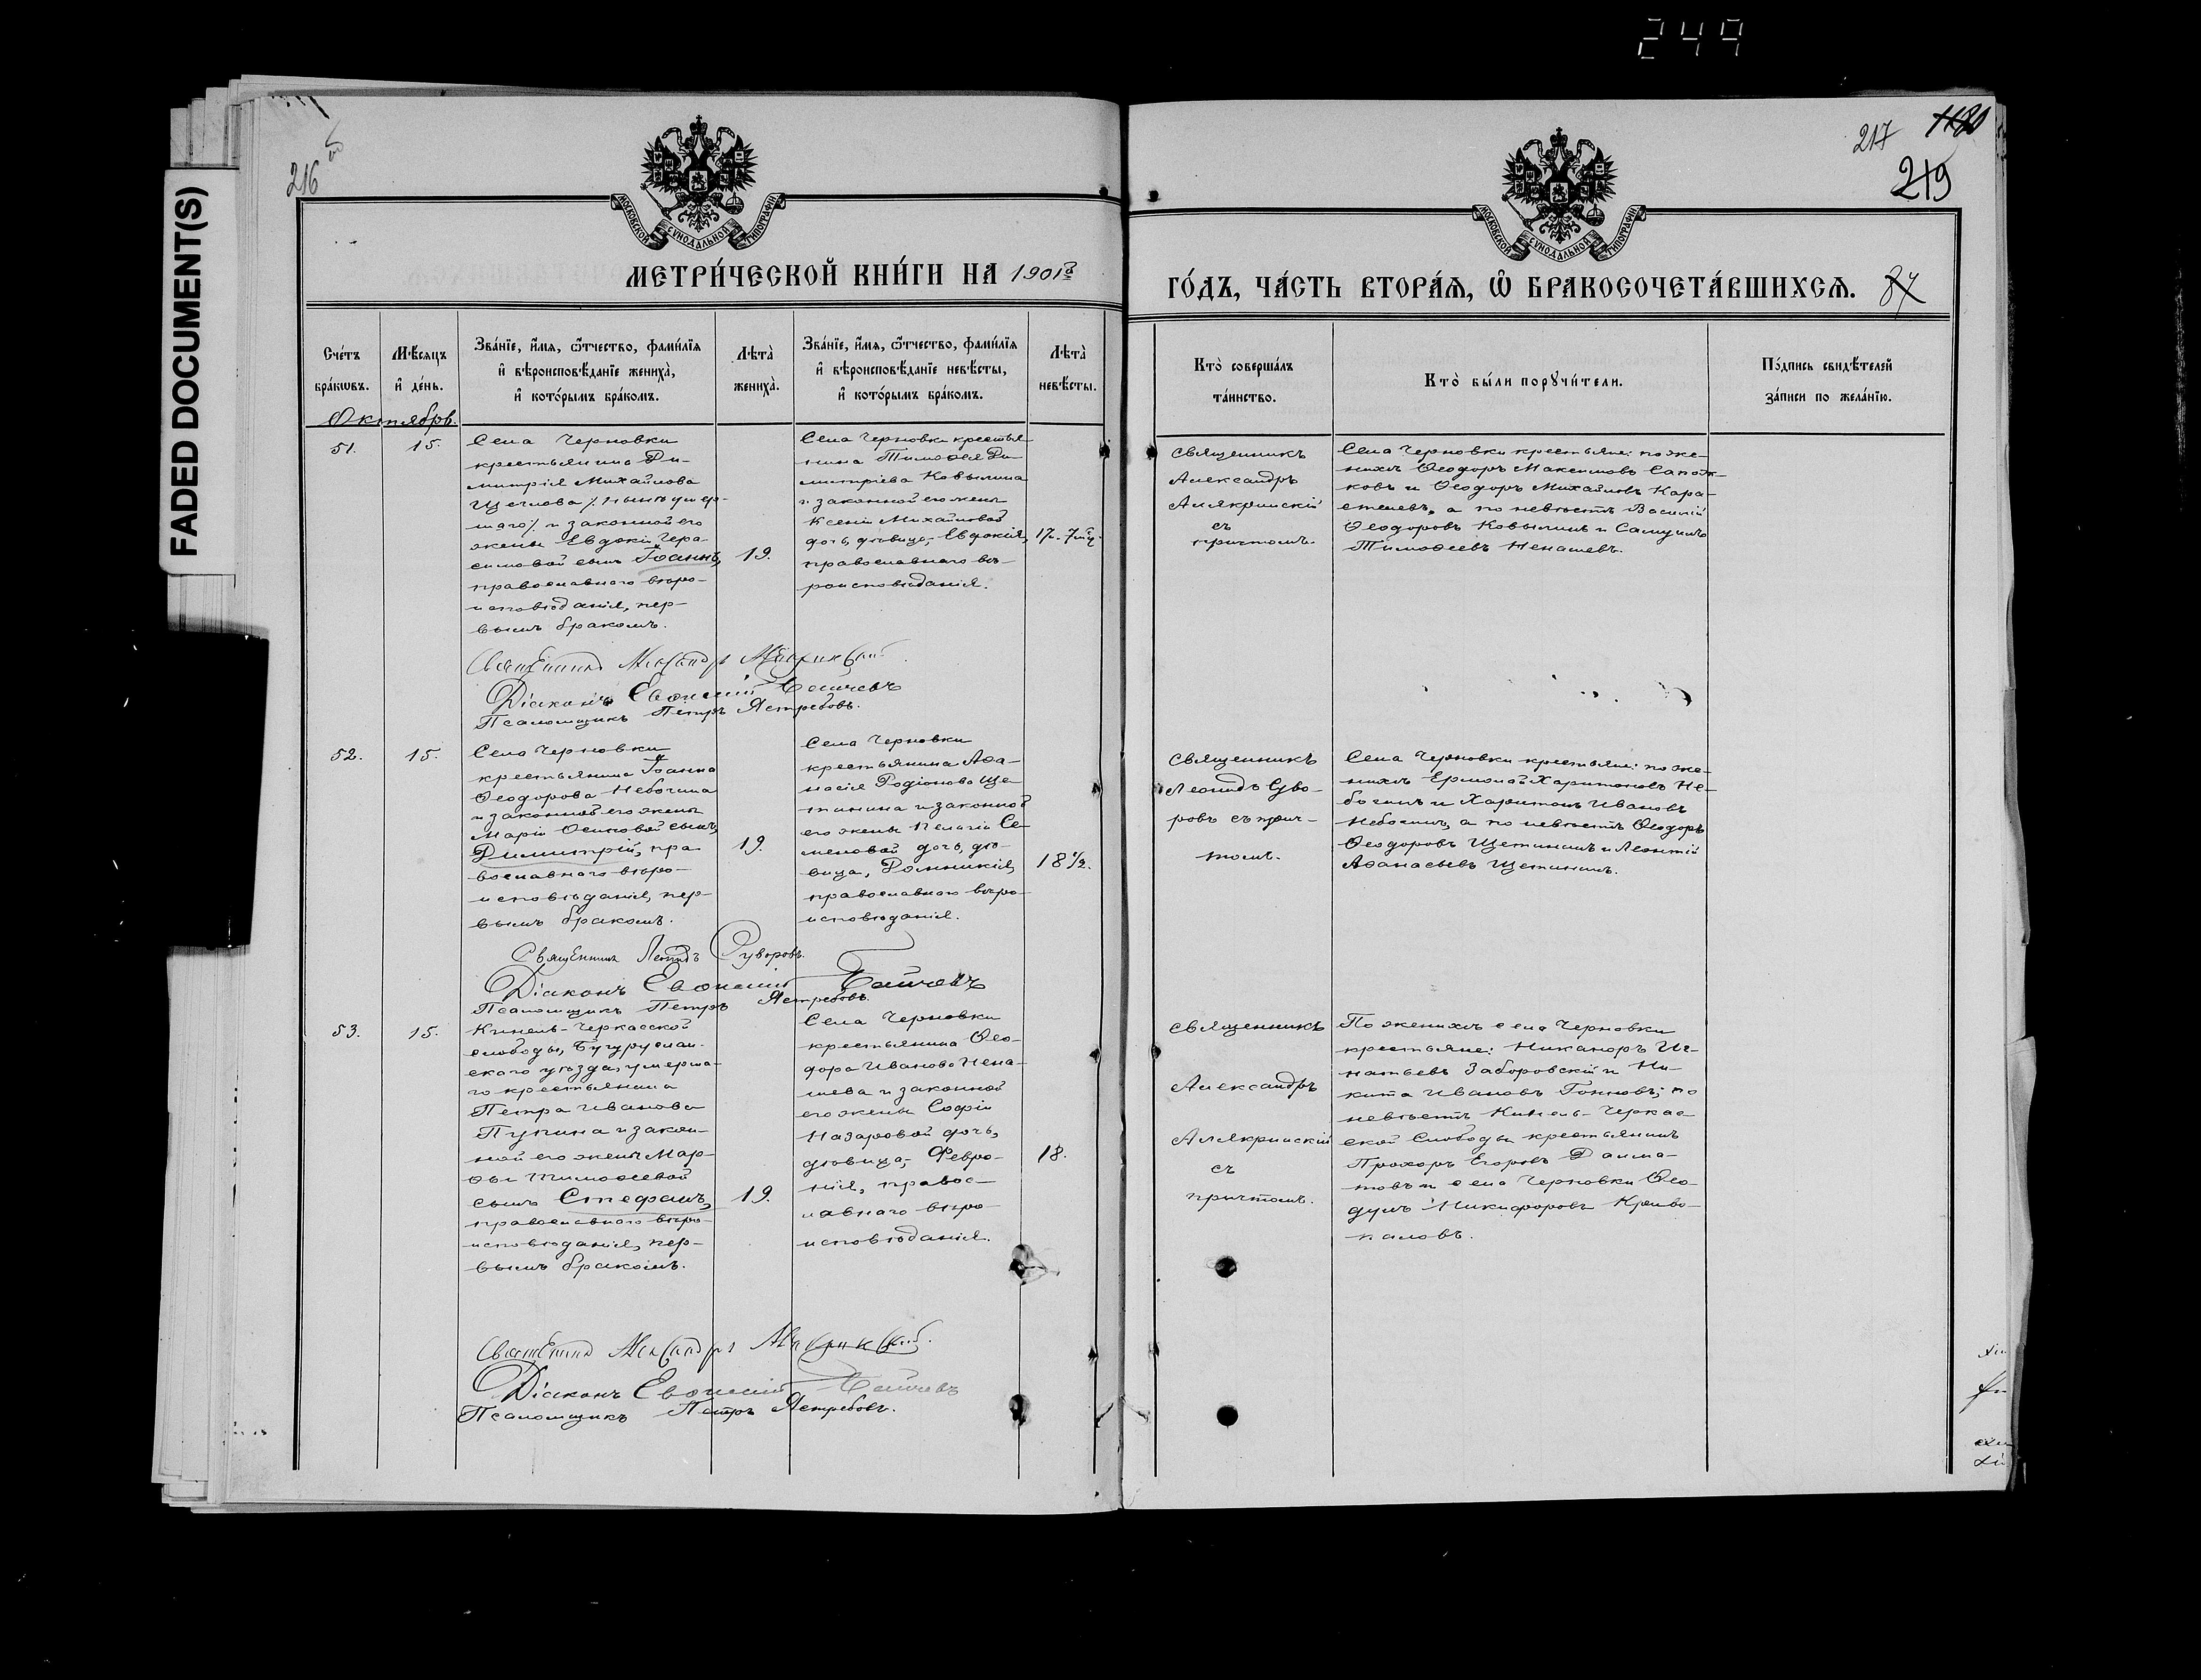 249
FADED DOCUMENT(S)
216 об
217
219
МОСКОВСКОЙ СѴНОДАЛЬНОЙ ТИПОГРАФІИ
МОСКОВСКОЙ СѴНОДАЛЬНОЙ ТИПОГРАФІИ
МЕТРИ́ЧЕСКОЙ КНИ́ГИ НА 1901й
ГО́ДЪ, ЧА́СТЬ ВТОРА́Я, Ѡ҆ БРАКОСОЧЕТА́ВШИХСЯ.
Сче́тъ
бра́кѡвъ.
Мѣ́сяцъ
и҆ де́нь.
Зва́нїе, и҆́мя, ѻ҆́тчество, фами́лїя
и҆ вѣроисповѣ́данїе жениха̀,
и҆ кото́рымъ бра́комъ.
Лѣта̀
жениха̀.
Зва́нїе, и҆́мя, ѻ҆́тчество, фами́лїя
и҆ вѣроисповѣ́данїе невѣ́сты,
и҆ кото́рымъ бра́комъ.
Лѣта̀
невѣ́сты.
Кто̀ соверша́лъ
та́инство.
Кто̀ бы́ли порꙋчи́тели.
По́дпись свидѣ́телей
за́писи по жела́нїю.
Октябрь.
51.
15.
Села Черновки
крестьянина Ди-
митрія Михайлова
Щеглова /: нынѣ умер-
шаго / и законной его
жены Евдокіи Гера-
симовой сынъ Іоаннъ,
православнаго вѣро-
исповѣданія, пер-
вымъ бракомъ.
19.
Села Черновки крестья-
нина Тимоѳея Ди-
митріева Ковылина
и законной его жены
Ксеніи Михайловой
дочь, дѣвица, Евдокія,
православнаго вѣ-
роисповѣданія.
17л. 7 мѣц.
Священникъ
Александръ
Алякринскій
съ
причтомъ.
Села Черновки крестьяне: по же-
нихѣ Ѳеодоръ Максимовъ Сапож-
ковъ и Ѳеодоръ Михайловъ Кара-
, а по невѣстѣ Василій
Ѳеодоровъ Ковылинъ и Самуилъ
Тимоѳеевъ Ненашевъ.
Священникъ Александръ Алякринскій.
Діаконъ Евѳимій
Псаломщикъ Петръ Ястребовъ.
52.
15.
Села Черновки
крестьянина Іоанна
Ѳеодорова Небогина
и законной его жены
Маріи Осиповой сынъ,
Димитрій, пра-
вославнаго вѣро-
исповѣданія, пер-
вымъ бракомъ.
19.
Села Черновки
крестьянина Аѳа-
насія Родіонова Ще-
тинина и законной
его жены Пелагіи Се-
меновой дочь, дѣ-
вица, Домникія,
православнаго вѣро-
исповѣданія.
18 1/2.
Священникъ
Леонидъ Суво-
ровъ съ прич-
томъ.
Села Черновки крестьяне: по же-
нихѣ Ермолай Харитоновъ Не-
богинъ и Харитонъ Ивановъ
Небогинъ, а по невѣстѣ Ѳеодоръ
Ѳеодоровъ Щетининъ и Леонтій
Аѳанасьевъ Щетининъ.
Священникъ Леонидъ Суворовъ.
Діаконъ Евѳимій
Псаломщикъ Петръ Ястребовъ.
53.
15.
Кинель-Черкасской
слободы, Бугуруслан-
скаго уѣзда, умерша-
го крестьянина
Петра Иванова
Пупина и закон-
ной его жены Мар-
ѳы Тимоѳеевой
сынъ Стефанъ,
православнаго вѣро-
исповѣданія, пер-
вымъ бракомъ.
19.
Села Черновки
крестьянина Ѳео-
дора Иванова Нена-
шева и законной
его жены Софіи
Назаровой дочь,
дѣвица, Февро-
нія, правос-
лавнаго вѣро-
исповѣданія.
18.
Священникъ
Александръ
Алякринскій
съ
причтомъ.
По женихѣ села Черновки
крестьяне: Никаноръ Иг-
натьевъ Заборовскій и Ни-
кита Ивановъ ; по
невѣстѣ Кинель-Черкас-
ской Слободы крестьянинъ
Прохоръ Егоровъ Далма-
товъ и села Черновки Ѳео-
дулъ Никифоровъ Криво-
паловъ.
Священникъ Александръ Алякринскій.
Діаконъ Евѳимій
Псаломщикъ Петръ Ястребовъ.